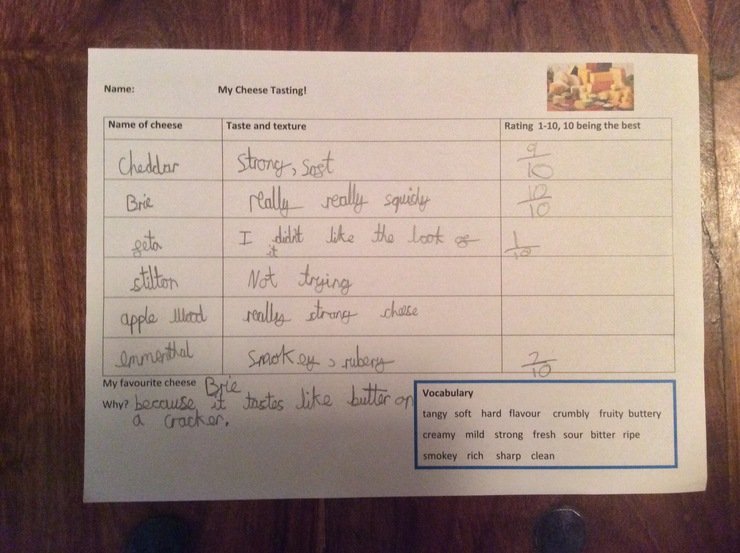 Name: My Cheese Tasting!
Name of cheese Taste and texture Rating 1-10, 10 being the best
Cheddar Strong, Soft 9/10
Brie really really squishy 10/10
feta I didn't like the look of it 1/10
stilton Not trying
apple wood really strong chease
emmenthal Smokey, rubery 7/10
My favourite cheese Brie
Why? because it tastes like butter on
a cracker.
Vocabulary
tangy soft hard flavour crumbly fruity buttery
creamy mild strong fresh sour bitter ripe
smokey rich sharp clean